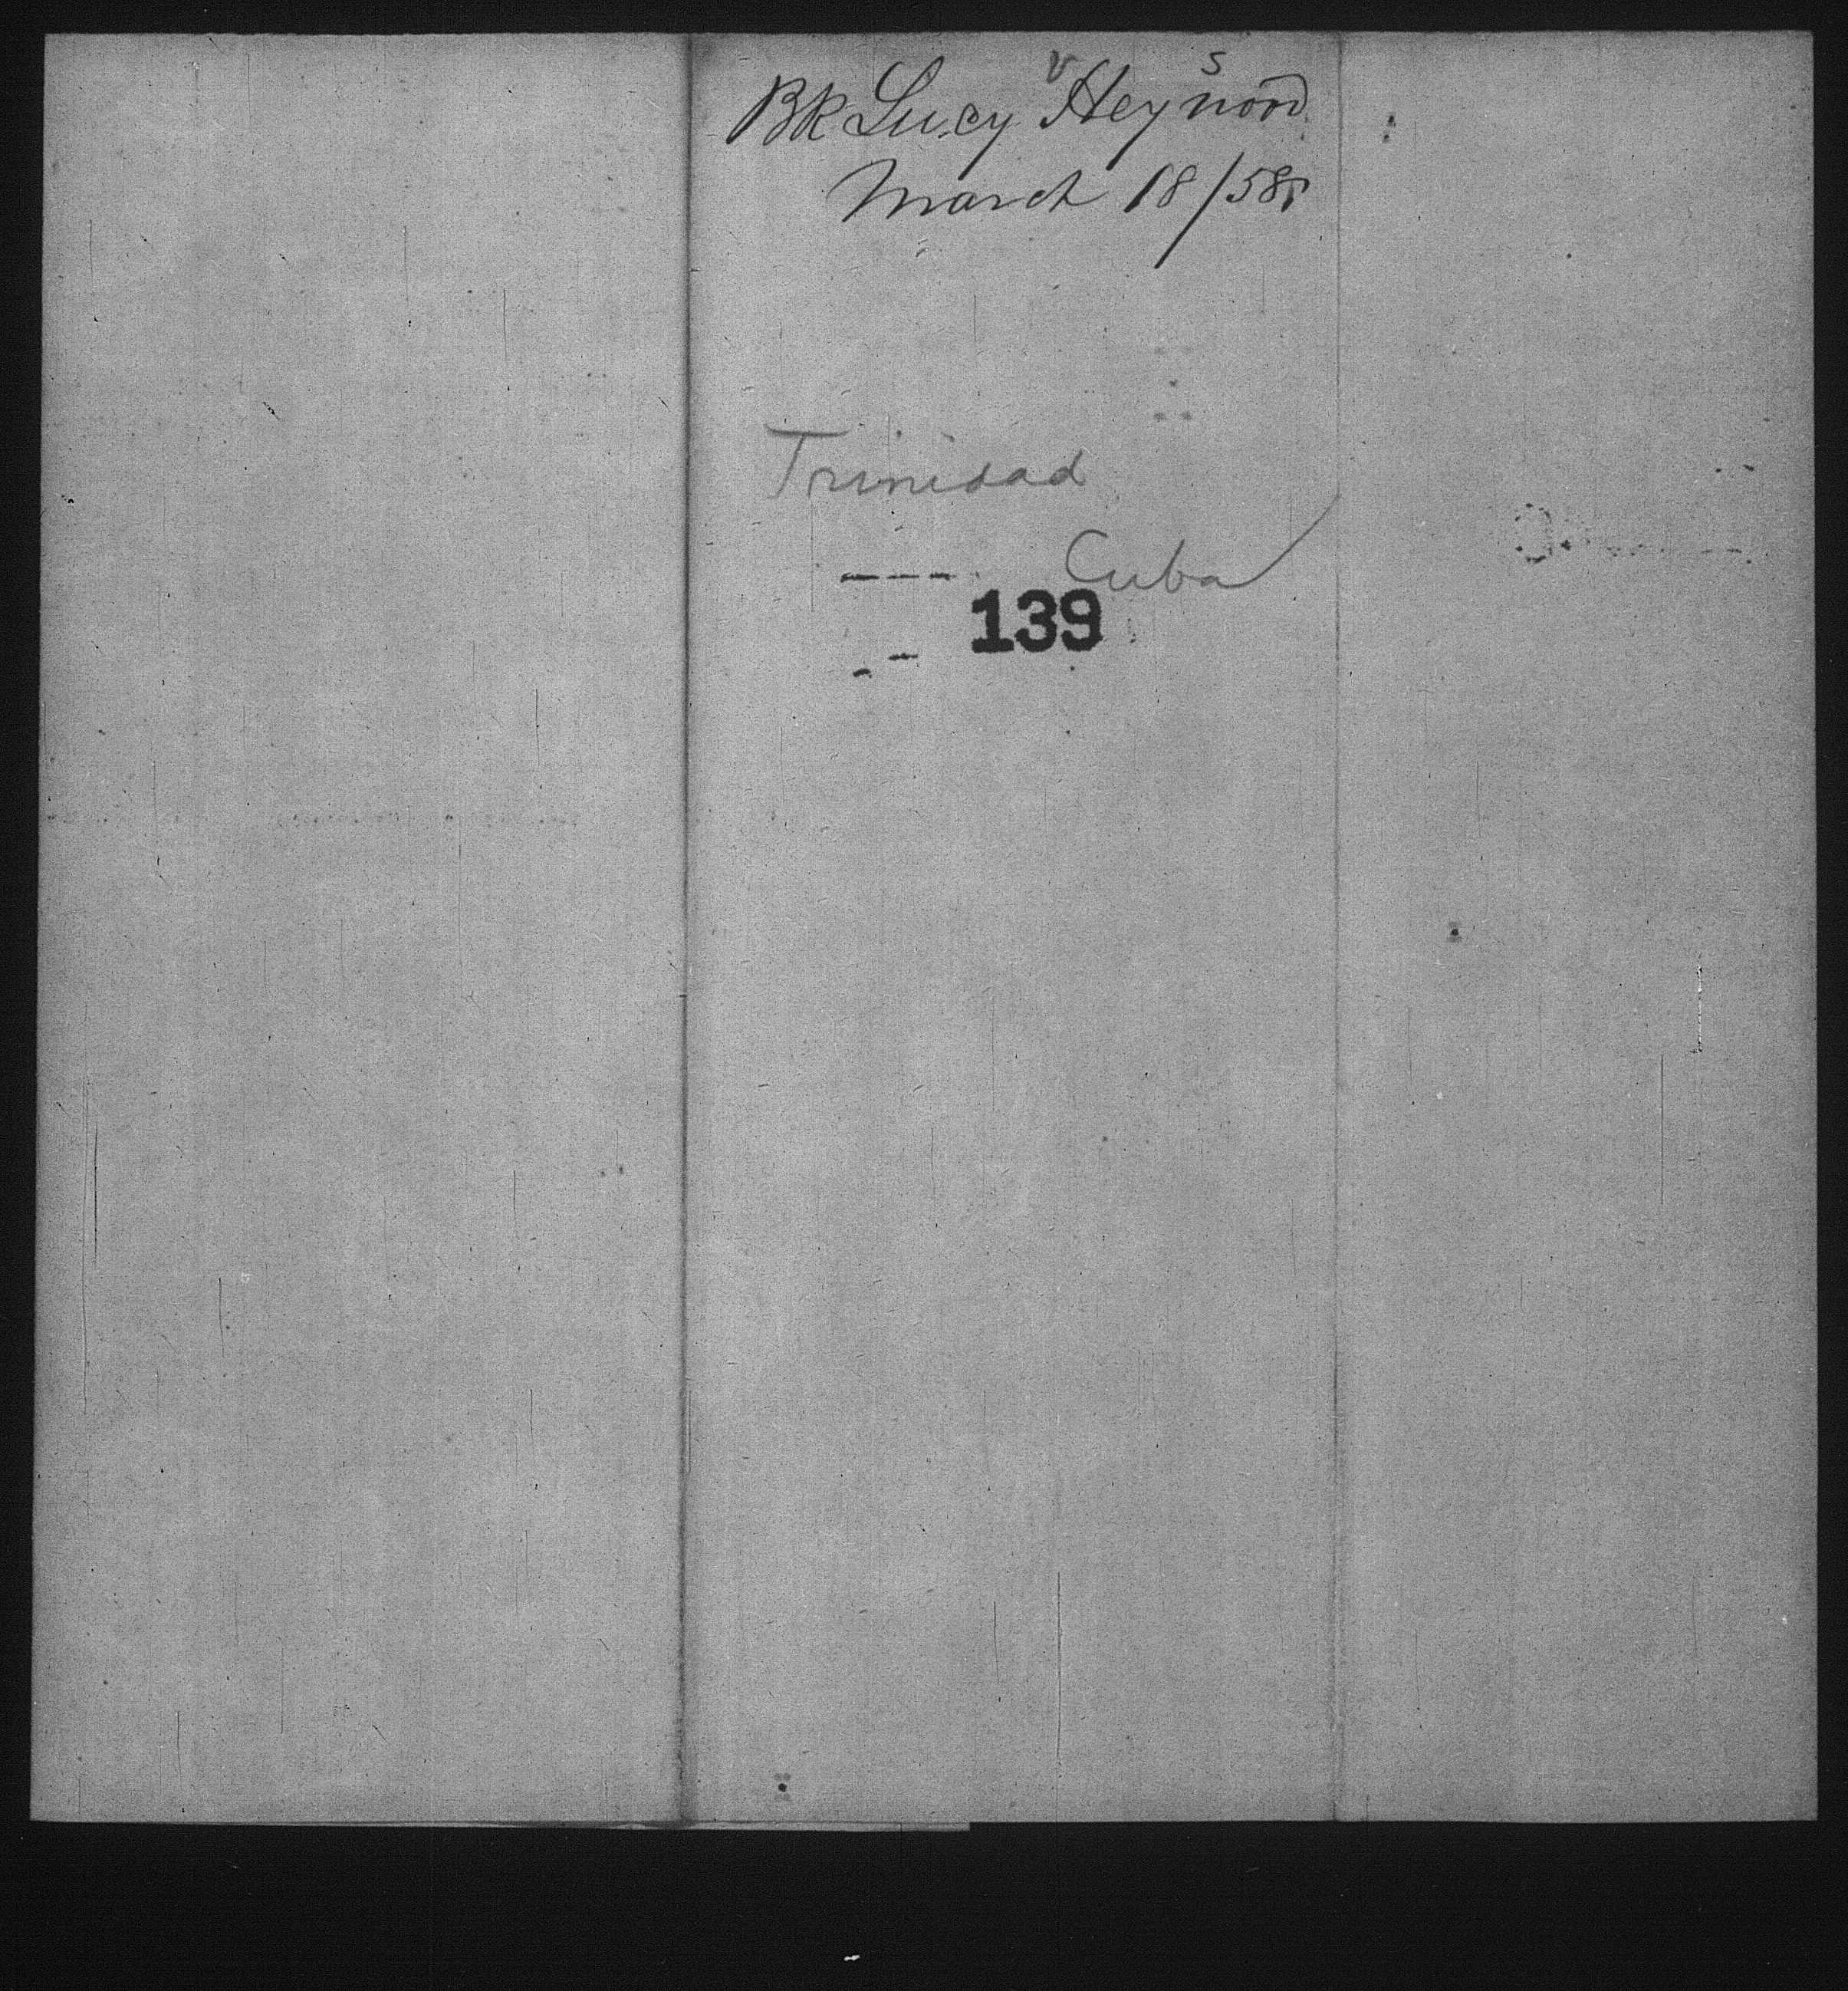 Bk Lucy Heywood
March 18/58
Trinidad
Cuba
139